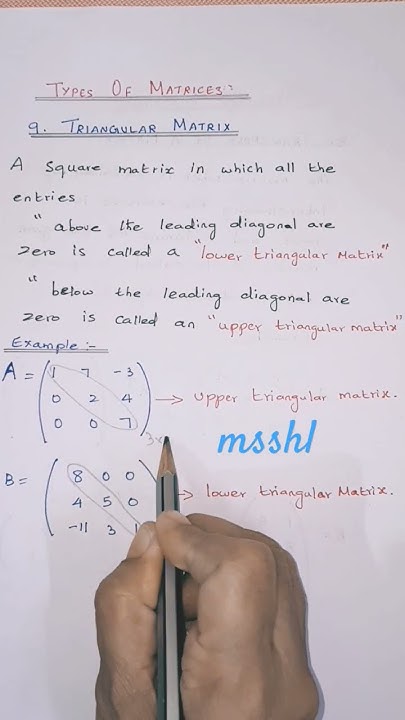 TYPES OF MATRICES:
9. TRIANGULAR MATRIX
A Square matrix in which all the
entries
"above the leading diagonal are
zero is called a "lower triangular Matrix"
"below the leading diagonal are
zero is called an "upper triangular matrix"
Example :-
A = ( 1 7 -3
0 2 4
0 0 7 ) 3x → upper triangular matrix.
msshl
B = ( 8 0 0
4 5 0
-11 3 → lower triangular Matrix.